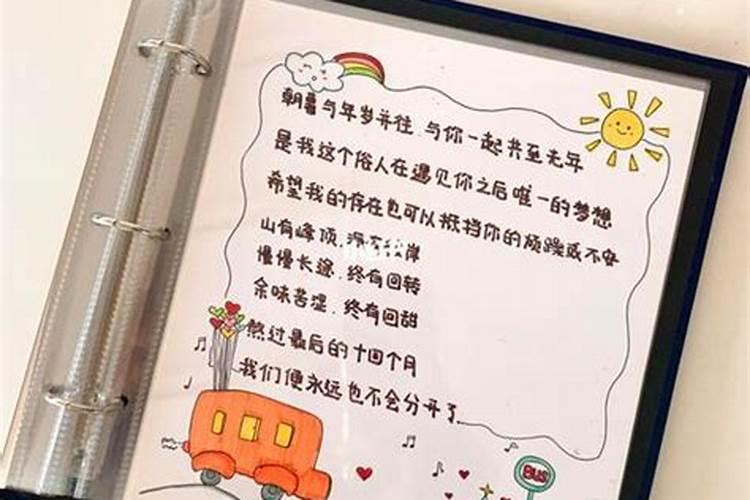 朝暮与年岁并往，与你一起共至光年
是我这个俗人在遇见你之后唯一的梦想
希望我的存在也可以抵挡你的烦躁或不安
山有峰顶 海有 岸
慢慢长途，终有回转
余味苦涩，终有回甜
熬过最后的十四个月
我们便永远也不会分开了
BUS